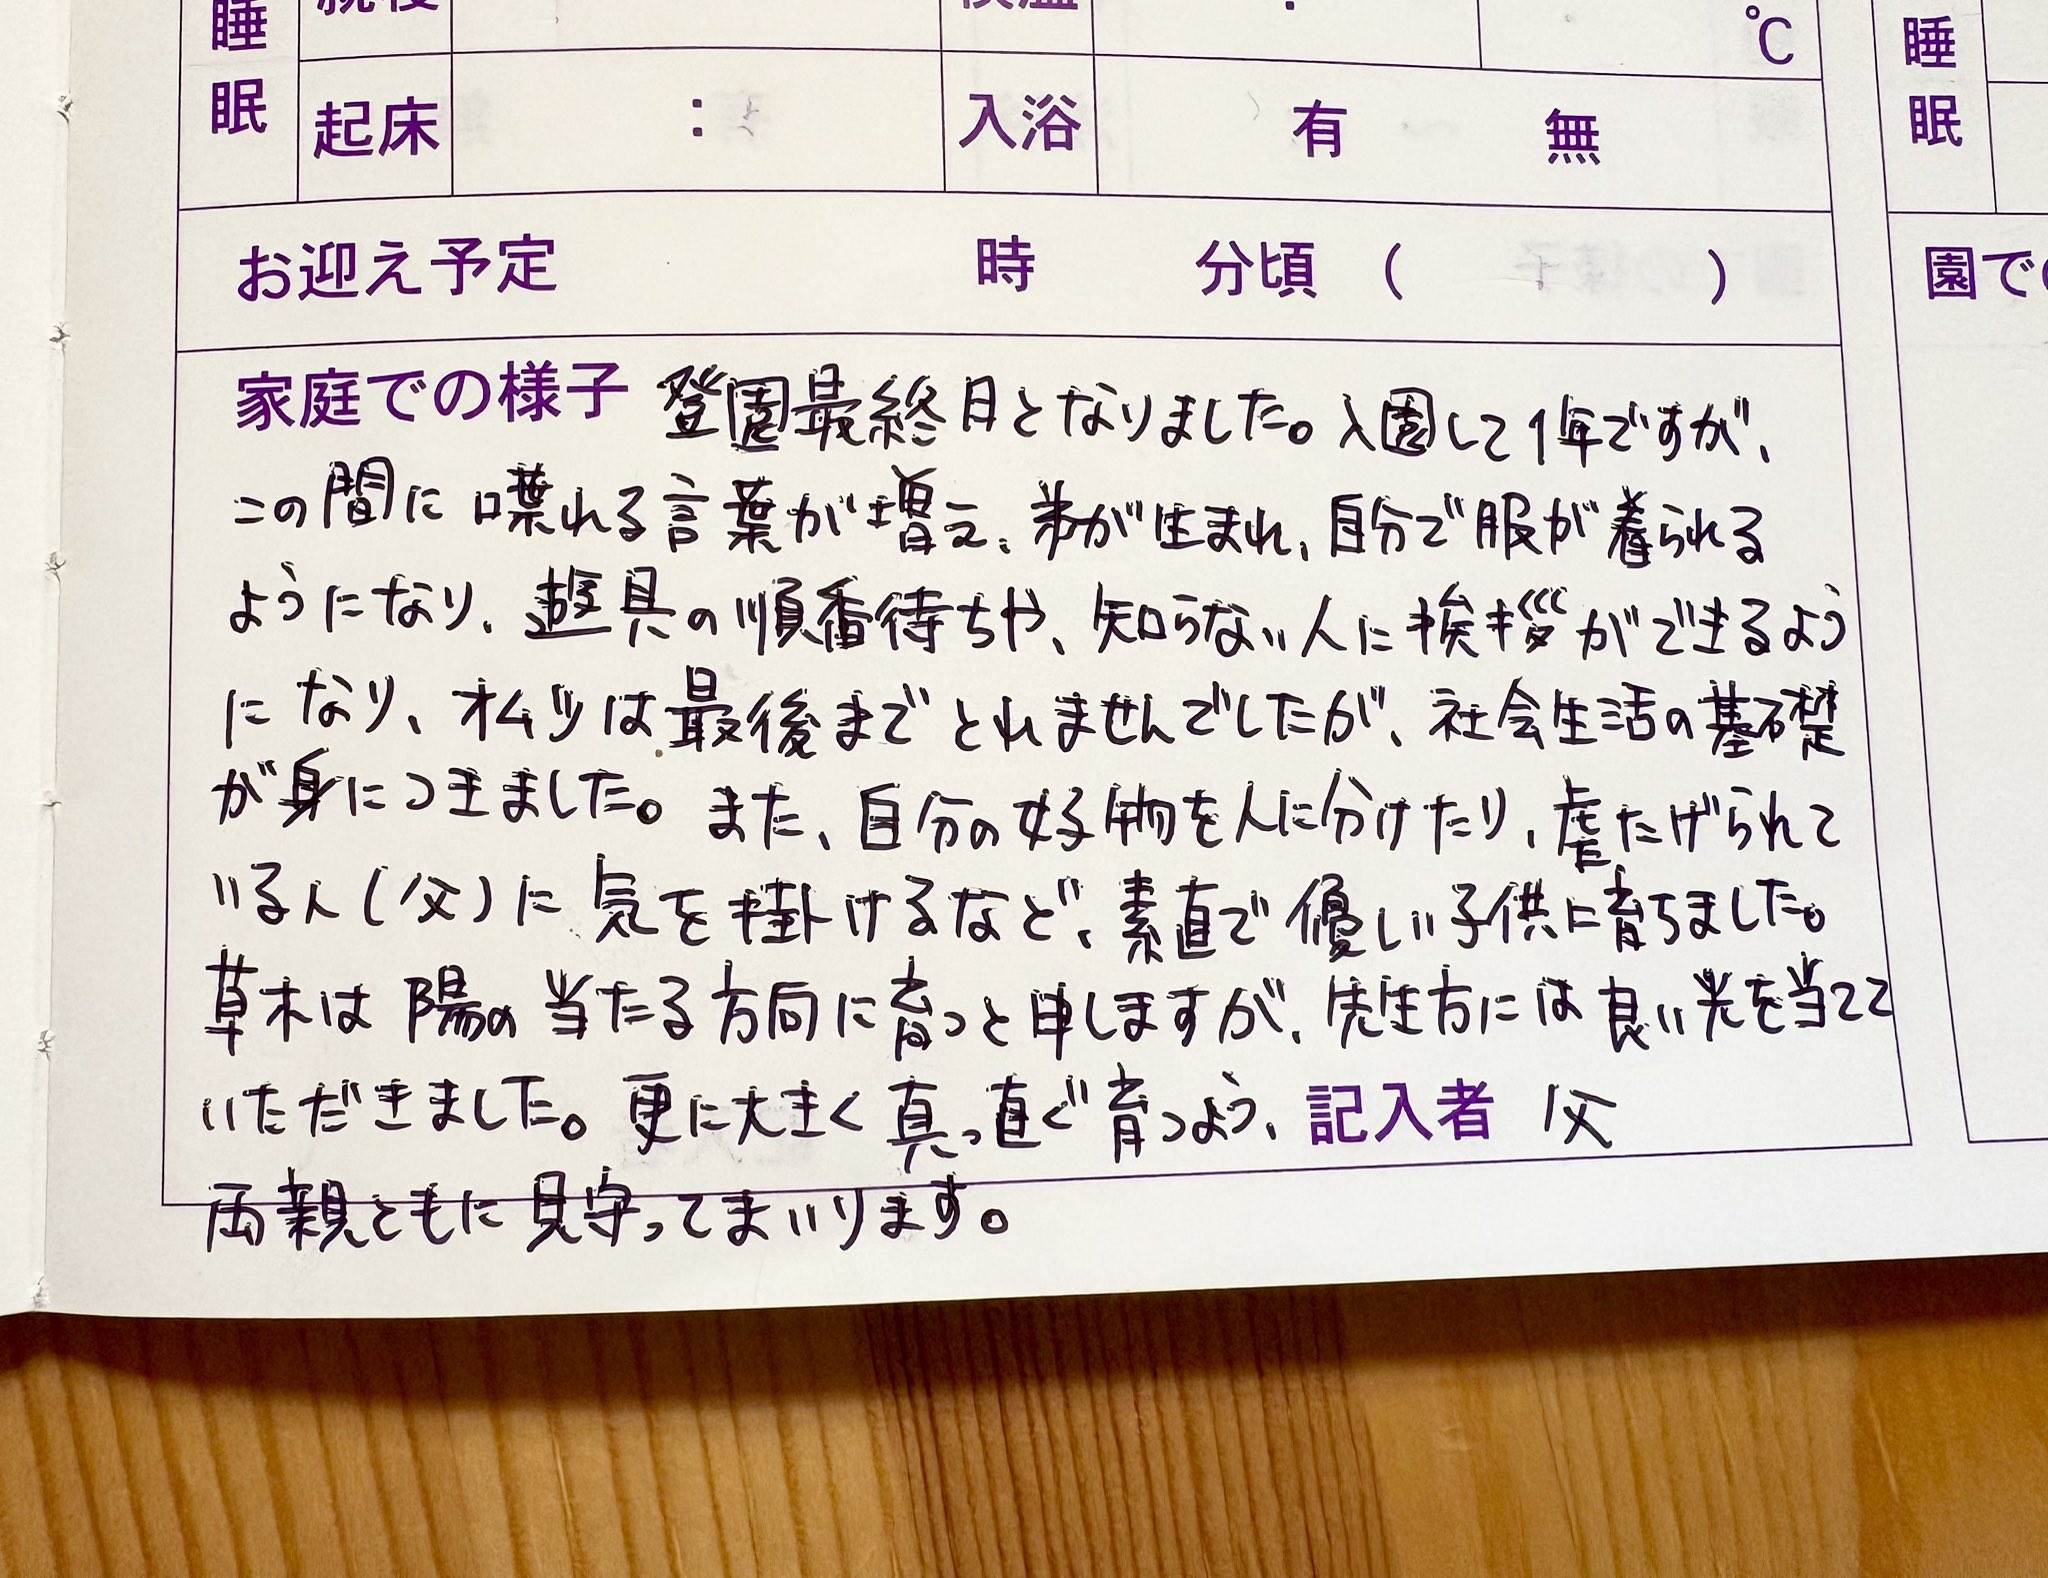 睡眠
℃
睡眠
起床 : 入浴 有 無
お迎え予定 時 分頃 ( )
園で
家庭での様子 登園最終月となりました。入園して1年ですが、
この間に喋れる言葉が増え、弟が生まれ、自分で服が着られる
ようになり、遊具の順番待ちや、知らない人に挨拶ができるよう
になり、オムツは最後までとれませんでしたが、社会生活の基礎
が身につきました。また、自分の好物を人に分けたり、虐たげられて
いる人(父)に気を掛けるなど、素直で優しい子供に育ちました。
草木は陽の当たる方向に育つと申しますが、先生方には良い光を当てて
いただきました。更に大きく真っ直ぐ育つよう、 記入者 父
両親ともに見守ってまいります。